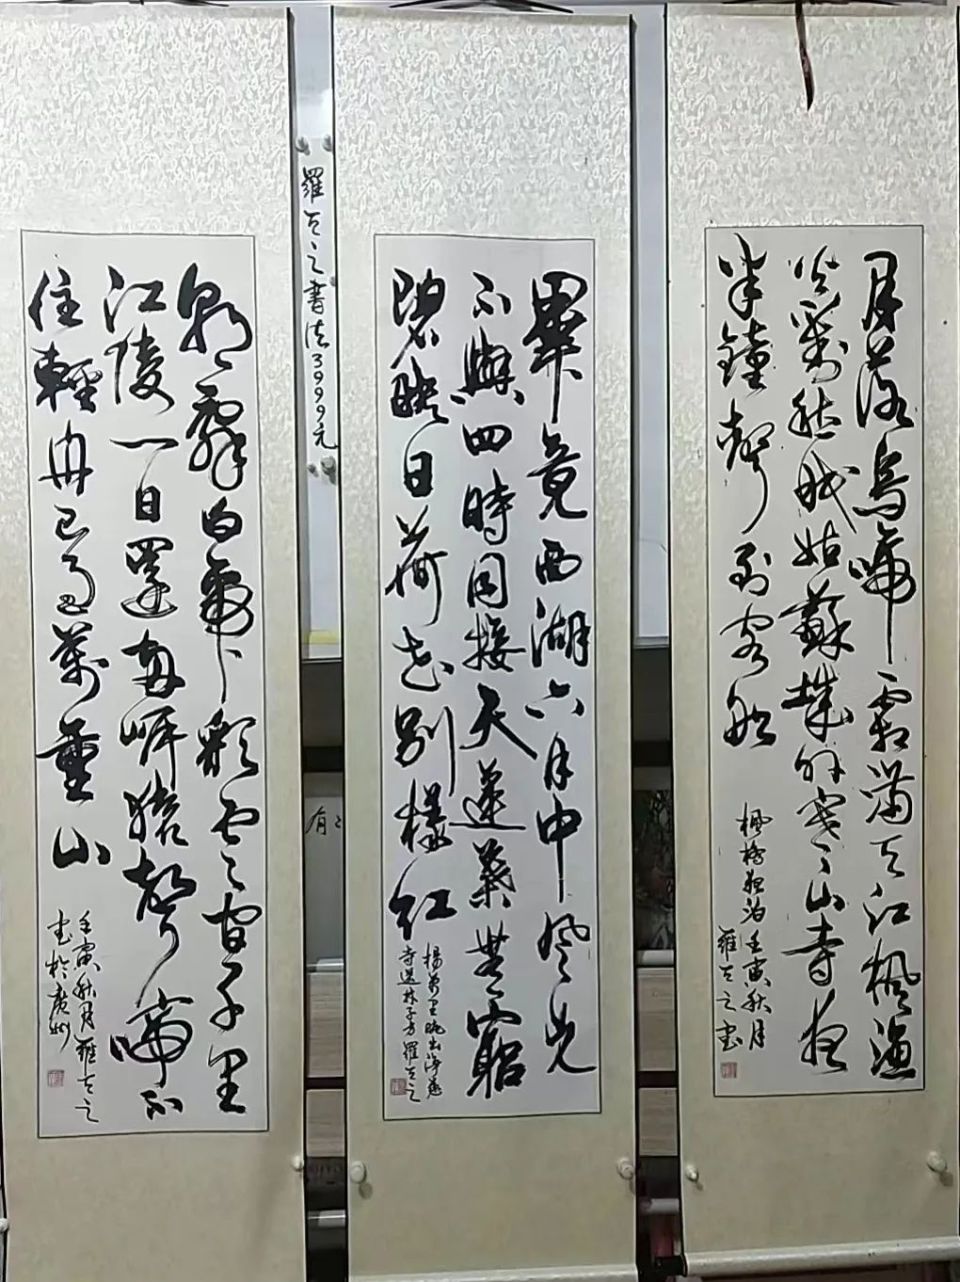 月落烏啼霜滿天江楓漁
火對愁眠姑蘇城外寒山寺夜
半鐘聲到客船
楓橋夜泊壬寅秋月
羅天之書
畢竟西湖六月中風光
不與四時同接天蓮葉無窮
碧映日荷花別樣紅
楊萬里曉出淨慈
寺送林子方羅天之
羅天之書法3999元
有
朝辭白帝彩雲間千里
江陵一日還兩岸猿聲啼不
住輕舟已過萬重山
壬寅秋月羅天之
書於廣州